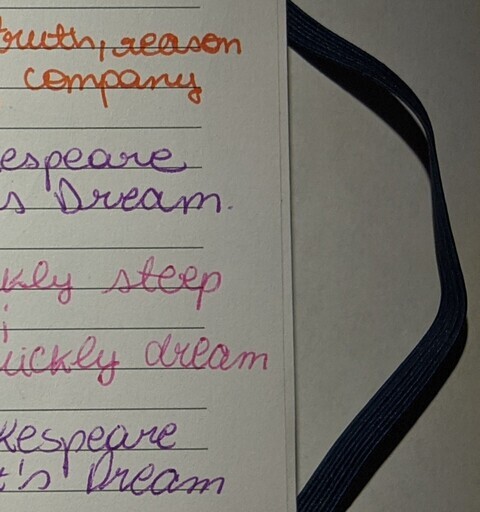 truth, reason
company
espeare
s Dream.
kly steep
;
uickly dream
kespeare
t's Dream